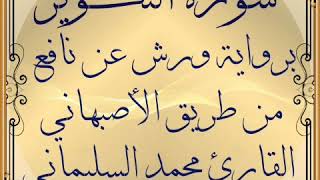 سورة التكوير
برواية ورش عن نافع
من طريق الأصبهاني
القارئ محمد السليماني